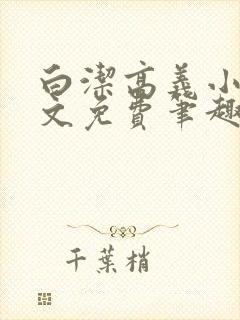 白潔高義小
文免費筆趣
千葉梢